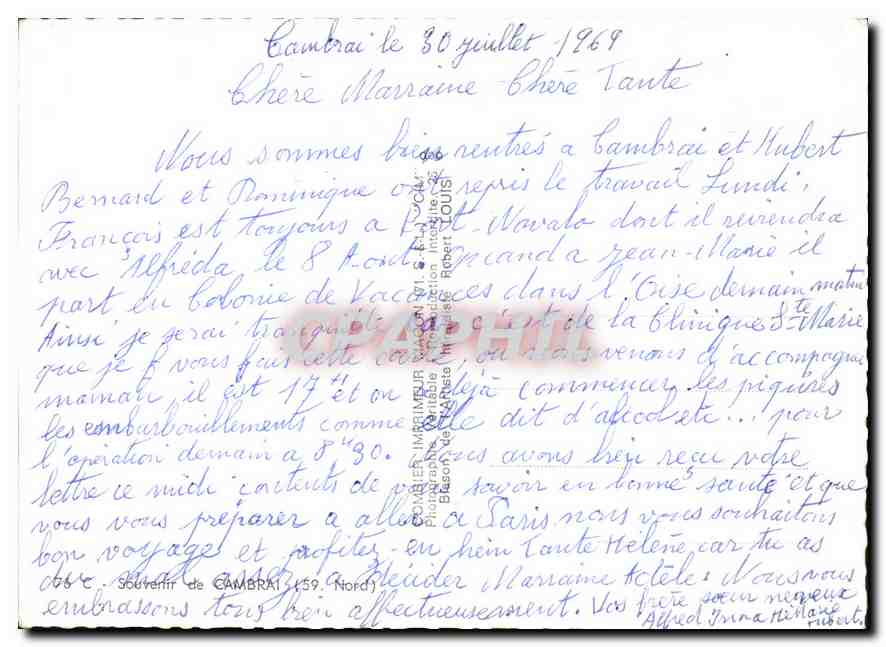 Cambrai le 30 juillet 1969
Chère Marraine Chère Tante
Nous sommes bien rentrés a Cambrai et Hubert
Bernard et Dominique ont repris le travail Lundi,
François est toujours a Port-Navalo dont il reviendra
avec Alfréda le 8 Aout, quand a Jean-Marie il
part en Colonie de Vacances dans l'Oise demain matin
Ainsi je serai tranquille, c'est de la Clinique Ste Marie
que je vous fais cette carte, ou nous venons d'accompagner
maman, il est 17H et on a déjà commencer les piqûres
les embarbouillements comme elle dit d'alcol etc... pour
l'opération demain a 8H30. Nous avons bien reçu votre
lettre ce midi contents de vous savoir en bonne santé et que
vous vous préparer a aller a Paris nous vous souhaitons
bon voyage et profitez-en hein Tante Hélène car tu as
eu mal assez a décider Marraine Adèle. Nous vous
embrassons tous bien affectueusement. Vos frère sœur neveux
Alfred Irma Marie
Hubert.
COMBIER IMPRIMEUR MACON (S.-&-L.) "CIM"
Photographie Véritable - Reproduction Interdite
Blason de l'Artiste Héraldiste Robert LOUIS
76 C - Souvenir de CAMBRAI (59. Nord)
CPAPHIL